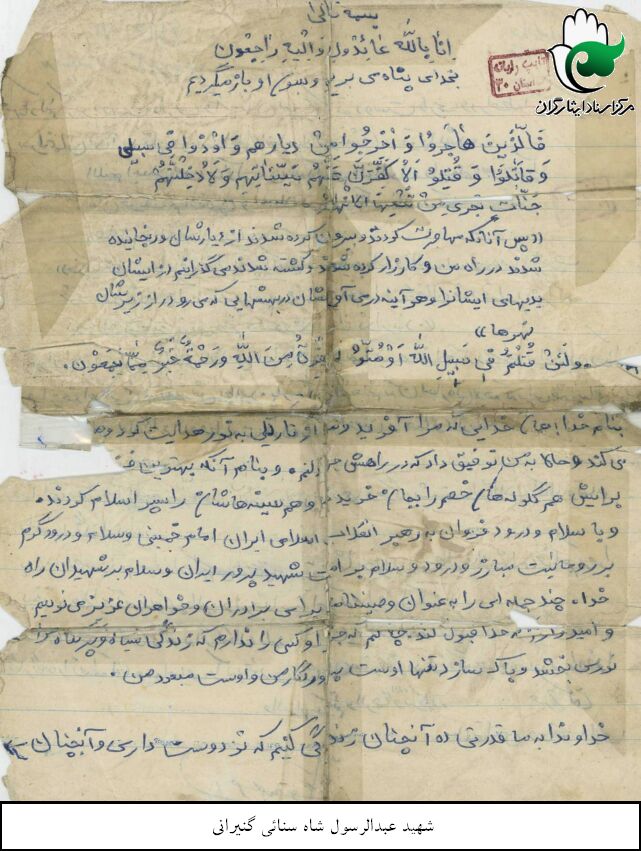 بسمه تعالی
انا بالله عائذون و الیه راجعون
بخدای پناه می بریم و بسوی او باز میگردیم
تایپ رایانه
استان ۳۰
مرکز اسناد ایثارگران
فالذین هاجروا و اخرجوا من دیارهم و اوذوا فی سبیلی
و قاتلوا و قتلوا لا کفرن عنهم سیئاتهم و لا دخلنهم
جنات تجری من تحتها الانهار
«پس آنانکه مهاجرت کردند و بیرون کرده شدند از دیارشان و رنجانیده
شدند در راه من و کارزار کرده شدند و کشته شدند می گذرانیم از ایشان
بدیهای ایشانرا و هر آینه در می آوریمشان در بهشتهایی که می رود از زیرشان
نهرها»
ولئن قتلتم فی سبیل الله او متم من الله ورحمة خیر مما یجمعون.
بنام خدا، خدایی که مرا آفرید و از تاریکی به نور هدایت کرد و
می کند و حالا به من توفیق داد که در راهش و بنام آنکه بهترین
برایش هم گلوله های خصم را بجان خریدند و هم سینه هاشان را سپر اسلام کردند.
و با سلام و درود فراوان به رهبر انقلاب اسلامی ایران امام خمینی و سلام و درود گرم
بر روحانیت مبارز و درود و سلام بر امت شهید پرور ایران و سلام بر شهیدان راه
خدا، چند جمله ای را به عنوان وصیتنامه برای برادران و خواهران عزیز می نویسم
و امیدوارم که خدا قبول کند. چرا که جز او کسی را ندارم که زندگی سیاه و پر گناه مرا
نوری بخشد و پاک سازد تنها اوست پروردگار من و اوست معبود من.
خداوندا به ما قدرتی ده آنچنان زندگی کنیم که تو دوست داری و آنچنان
شهید عبدالرسول شاه سنائی گنیرانی